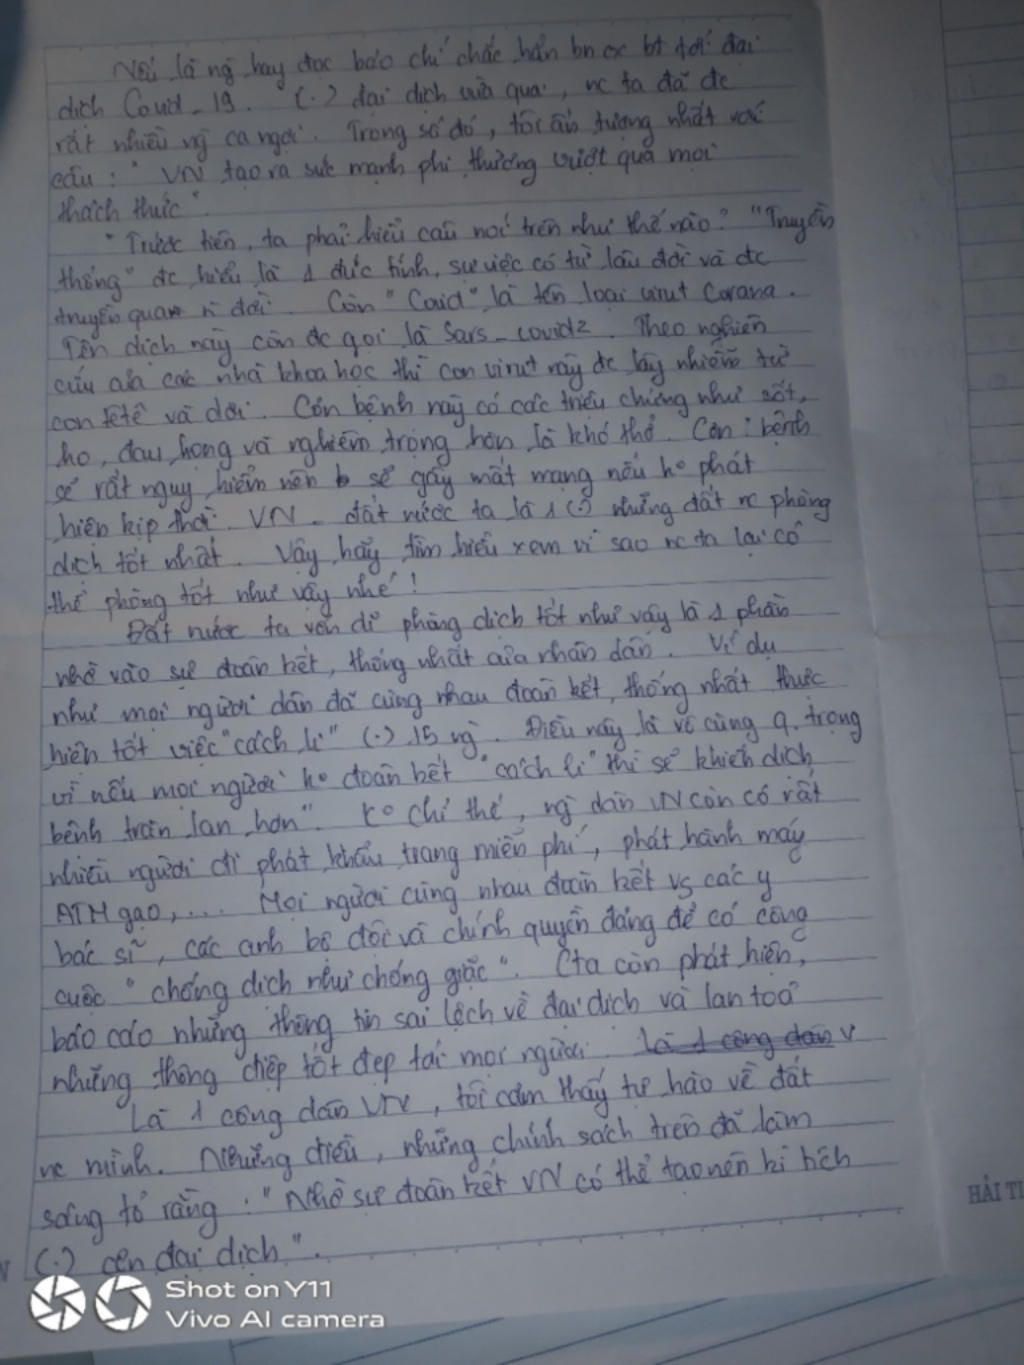 Nếu là ng hay đọc báo chí chắc hẳn bn bt tới đại
dịch Covid_19. (.) đại dịch vừa qua, nc ta đã đc
rất nhiều ng ca ngợi. Trong số đó, tôi ấn tượng nhất với
câu: " VN tạo ra sức mạnh phi thường vượt qua mọi
thách thức".
"Trước tiên, ta phải hiểu câu nói trên như thế nào? "Truyền
thống" đc hiểu là 1 đức tính, sự việc có từ lâu đời và đc
truyền qua đời. Còn "Covid" là tên loại virut Corona.
Tên dịch này còn đc gọi là Sars_covid2. Theo nghiên
cứu của các nhà khoa học thì con virut này đc lây nhiễm từ
con têtê và dơi. Cơn bệnh này có các triệu chứng như sốt,
ho, đau họng và nghiêm trọng hơn là khó thở. Căn bệnh
sẽ rất nguy hiểm nên sẽ gây mất mạng nếu ko phát
hiện kịp thời. VN - đất nước ta là 1 (.) những đất nc phòng
dịch tốt nhất. Vậy hãy tìm hiểu xem vì sao nc ta lại có
thể phòng tốt như vậy nhé!
Đất nước ta vẫn để phòng dịch tốt như vậy là 1 phần
nhờ vào sự đoàn kết, thống nhất của nhân dân. Ví dụ
như mọi người dân đã cùng nhau đoàn kết, thống nhất thực
hiện tốt việc "cách li" (.) 15 ng. Điều này là vô cùng q. trọng
vì nếu mọi người ko đoàn kết "cách li" thì sẽ khiến dịch
bệnh tràn lan hơn". Ko chỉ thế, ng dân VN còn có rất
nhiều người đi phát khẩu trang miễn phí, phát hành máy
ATM gạo,... Mọi người cùng nhau đoàn kết vs các y
bác sĩ, các anh bộ đội và chính quyền đảng để có công
cuộc "chống dịch như chống giặc". Cta còn phát hiện,
báo cáo những thông tin sai lệch về đại dịch và lan toả
những thông điệp tốt đẹp tới mọi người. là 1 công dân V
Là 1 công dân VN, tôi cảm thấy tự hào về đất
nc mình. Những điều, những chính sách trên đã làm
sáng tỏ rằng: "Nhờ sự đoàn kết VN có thể tạo nên kì tích
(.) cơn đại dịch".
HẢI TI
Shot on Y11
Vivo AI camera